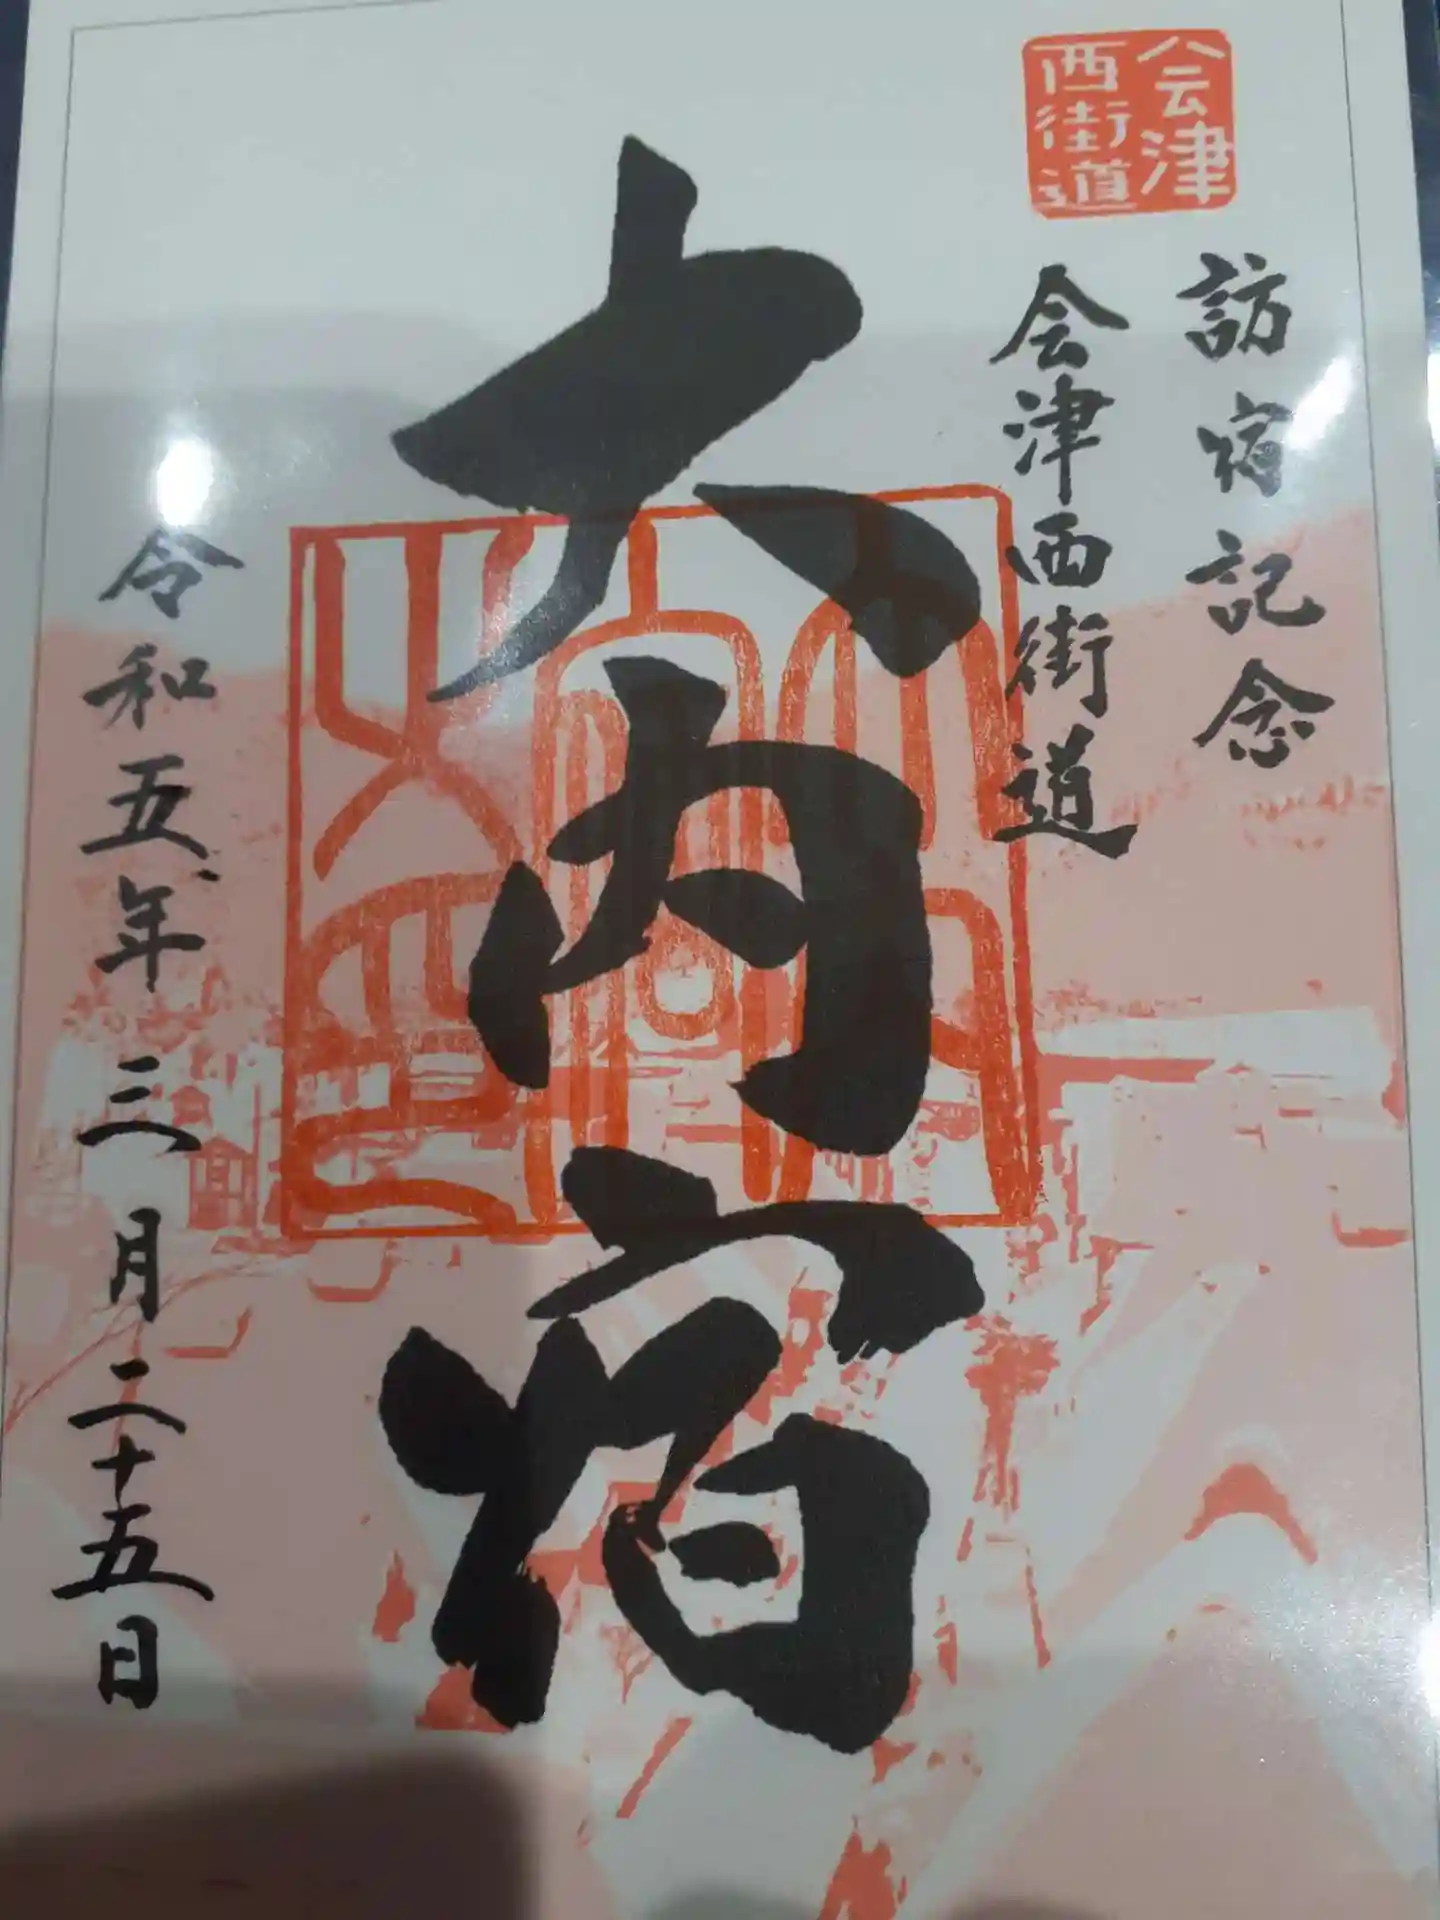 会津
西街道
訪宿記念
会津西街道
大内宿
令和五年三月二十五日